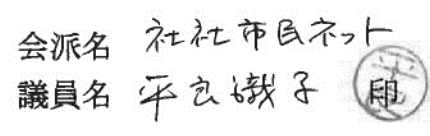 会派名 社社市民ネット
議員名 平良識子 印